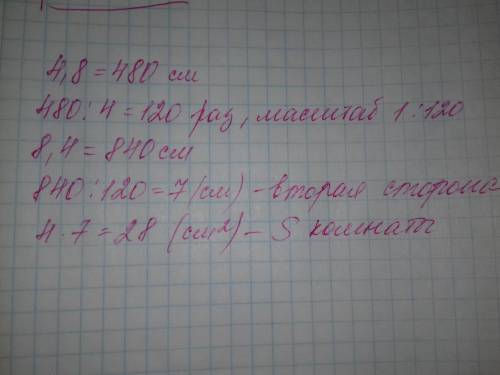 4,8 = 480 см
480 : 4 = 120 раз, масштаб 1 : 120
8,4 = 840 см
840 : 120 = 7 (см) - вторая сторона
4 · 7 = 28 (см²) - S комнаты